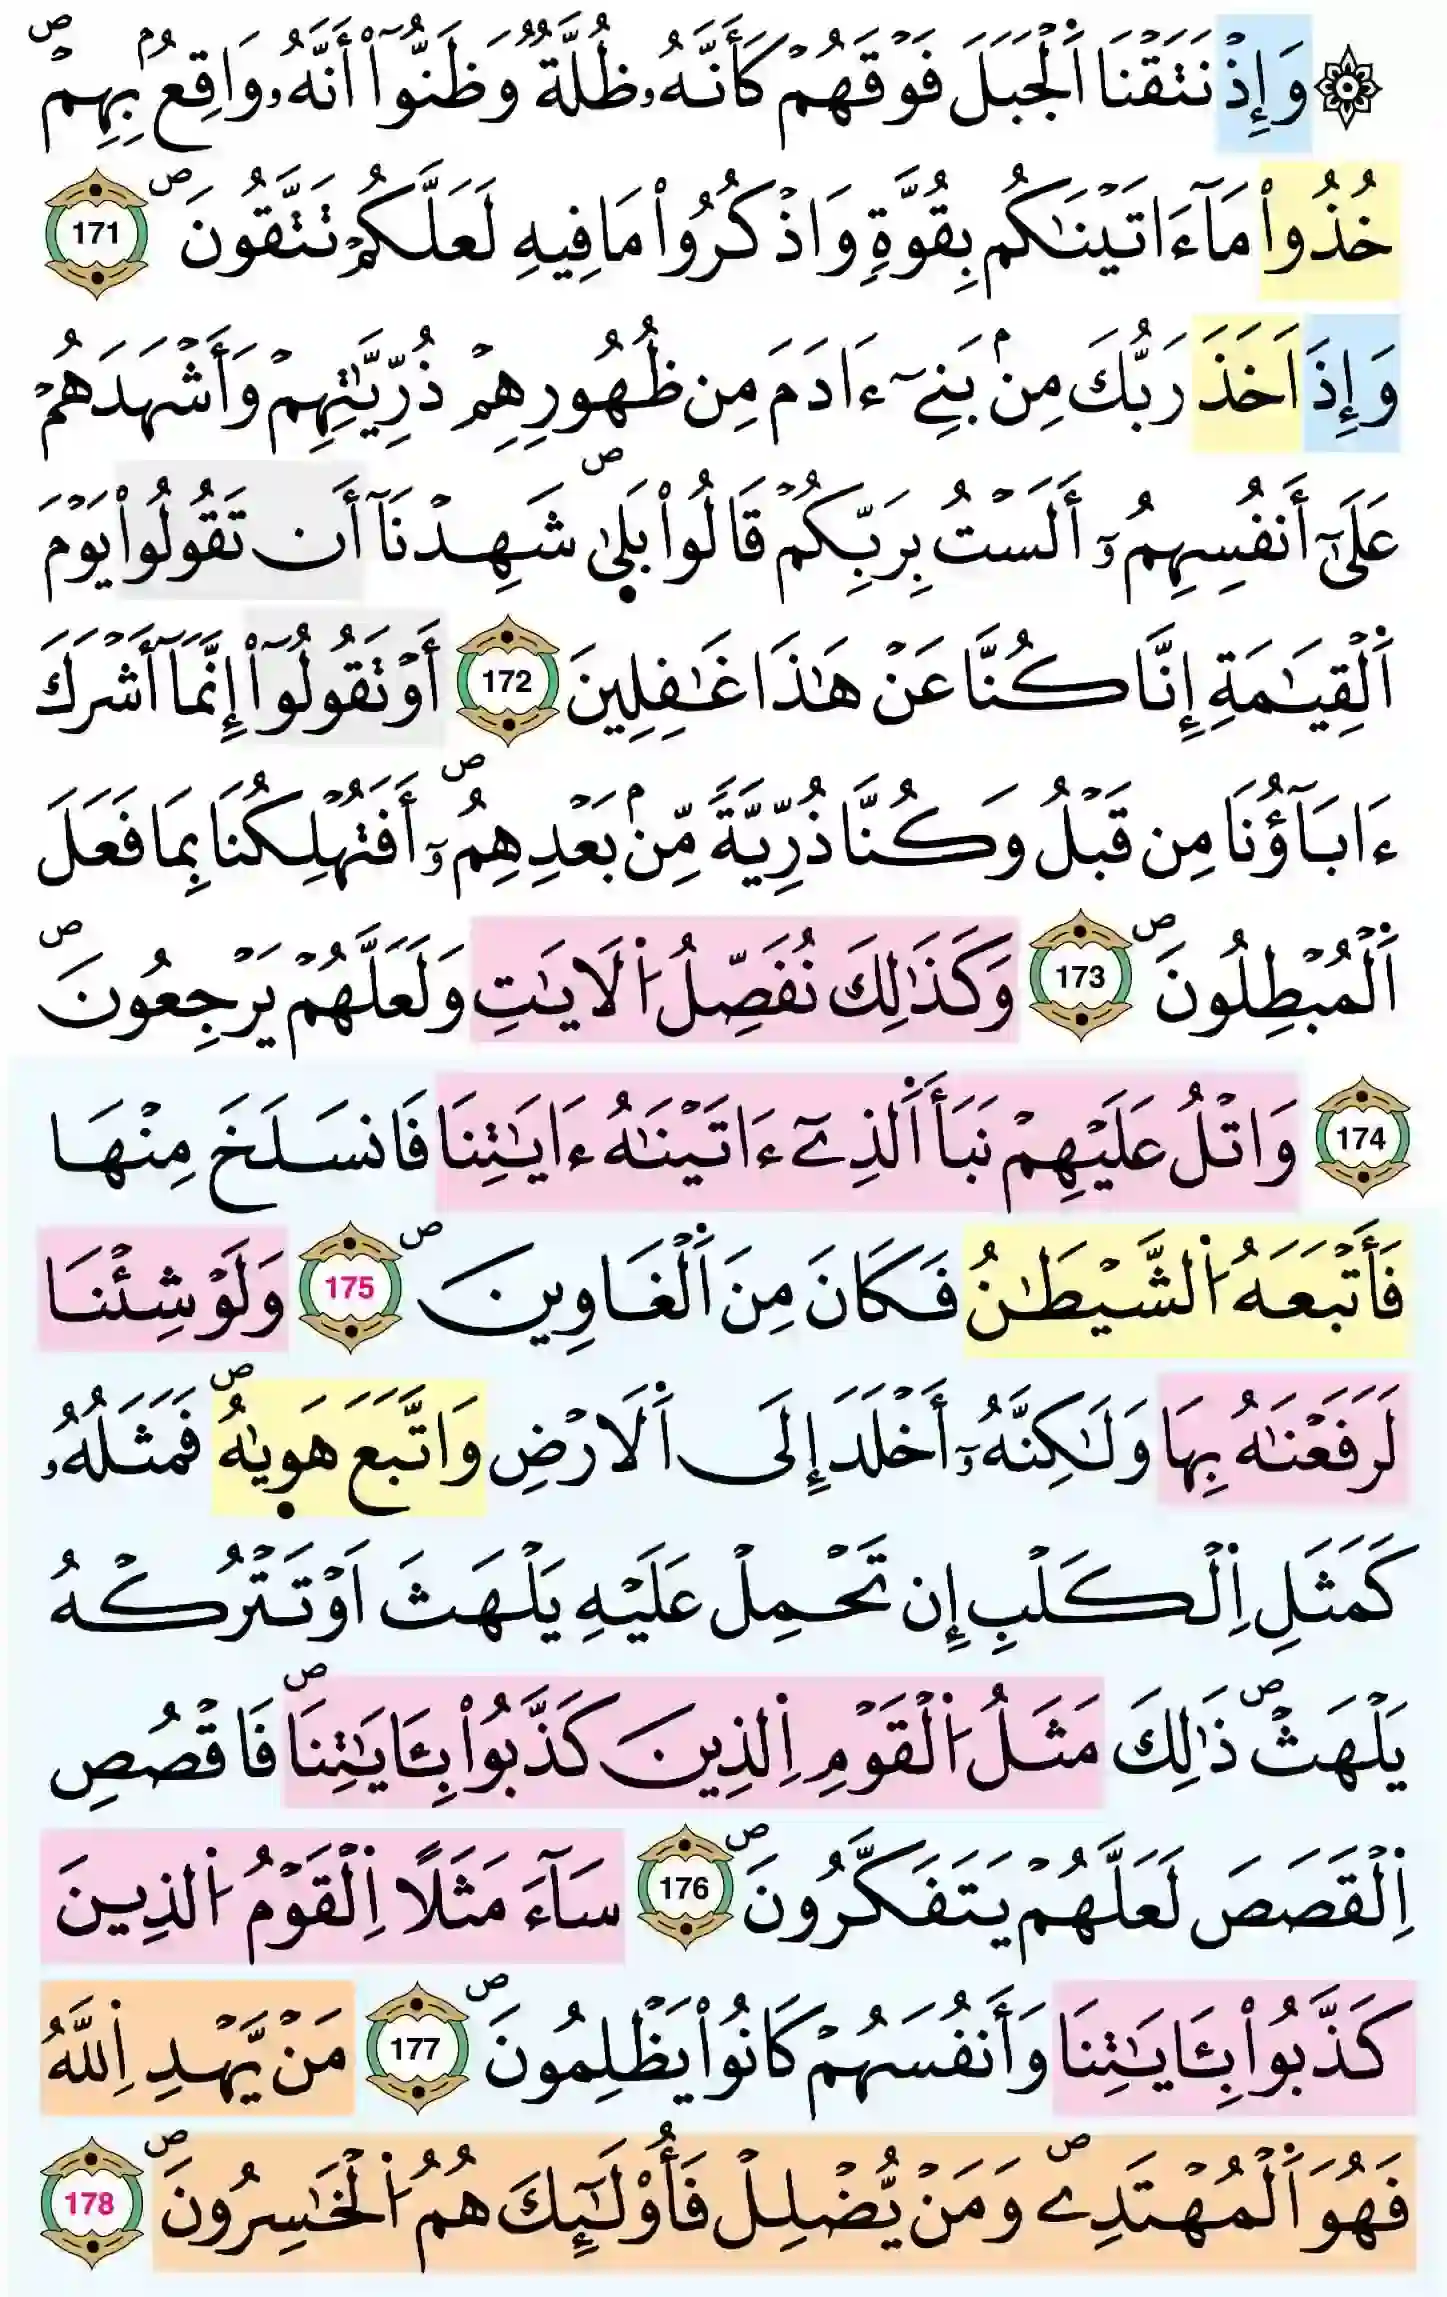 ۞ وَإِذْ نَتَقْنَا اَ۬لْجَبَلَ فَوْقَهُمْ كَأَنَّهُۥ ظُلَّةٞ وَظَنُّوٓاْ أَنَّهُۥ وَاقِعُۢ بِهِمْۖ
خُذُواْ مَآ ءَاتَيْنَٰكُم بِقُوَّةٖ وَاذْكُرُواْ مَا فِيهِ لَعَلَّكُمْ تَتَّقُونَۖ 171
وَإِذَ اَخَذَ رَبُّكَ مِنۢ بَنِےٓ ءَادَمَ مِن ظُهُورِهِمْ ذُرِّيَّٰتِهِمْ وَأَشْهَدَهُمْ
عَلَىٰٓ أَنفُسِهِمُۥٓ أَلَسْتُ بِرَبِّكُمْ قَالُواْ بَل۪ىٰۖ شَهِدْنَآ أَن تَقُولُواْ يَوْمَ
اَ۬لْقِيَٰمَةِ إِنَّا كُنَّا عَنْ هَٰذَا غَٰفِلِينَ 172 أَوْ تَقُولُوٓاْ إِنَّمَآ أَشْرَكَ
ءَابَآؤُنَا مِن قَبْلُ وَكُنَّا ذُرِّيَّةٗ مِّنۢ بَعْدِهِمُۥٓۖ أَفَتُهْلِكُنَا بِمَا فَعَلَ
اَ۬لْمُبْطِلُونَۖ 173 وَكَذَٰلِكَ نُفَصِّلُ اُ۬لَايَٰتِ وَلَعَلَّهُمْ يَرْجِعُونَۖ
174 وَاتْلُ عَلَيْهِمْ نَبَأَ اَ۬لذِےٓ ءَاتَيْنَٰهُ ءَايَٰتِنَا فَانسَلَخَ مِنْهَا
فَأَتْبَعَهُ اُ۬لشَّيْطَٰنُ فَكَانَ مِنَ اَ۬لْغَاوِينَۖ 175 وَلَوْ شِئْنَا
لَرَفَعْنَٰهُ بِهَا وَلَٰكِنَّهُۥٓ أَخْلَدَ إِلَى اَ۬لَارْضِ وَاتَّبَعَ هَو۪يٰهُۖ فَمَثَلُهُۥ
كَمَثَلِ اِ۬لْكَلْبِ إِن تَحْمِلْ عَلَيْهِ يَلْهَثَ اَوْ تَتْرُكْهُ
يَلْهَثْۖ ذَٰلِكَ مَثَلُ اُ۬لْقَوْمِ اِ۬لذِينَ كَذَّبُواْ بِـَٔايَٰتِنَاۖ فَاقْصُصِ
اِ۬لْقَصَصَ لَعَلَّهُمْ يَتَفَكَّرُونَۖ 176 سَآءَ مَثَلاً اِ۬لْقَوْمُ اُ۬لذِينَ
كَذَّبُواْ بِـَٔايَٰتِنَا وَأَنفُسَهُمْ كَانُواْ يَظْلِمُونَۖ 177 مَنْ يَّهْدِ اِ۬للَّهُ
فَهُوَ اَ۬لْمُهْتَدِےۖ وَمَنْ يُّضْلِلْ فَأُوْلَٰٓئِكَ هُمُ اُ۬لْخَٰسِرُونَۖ 178